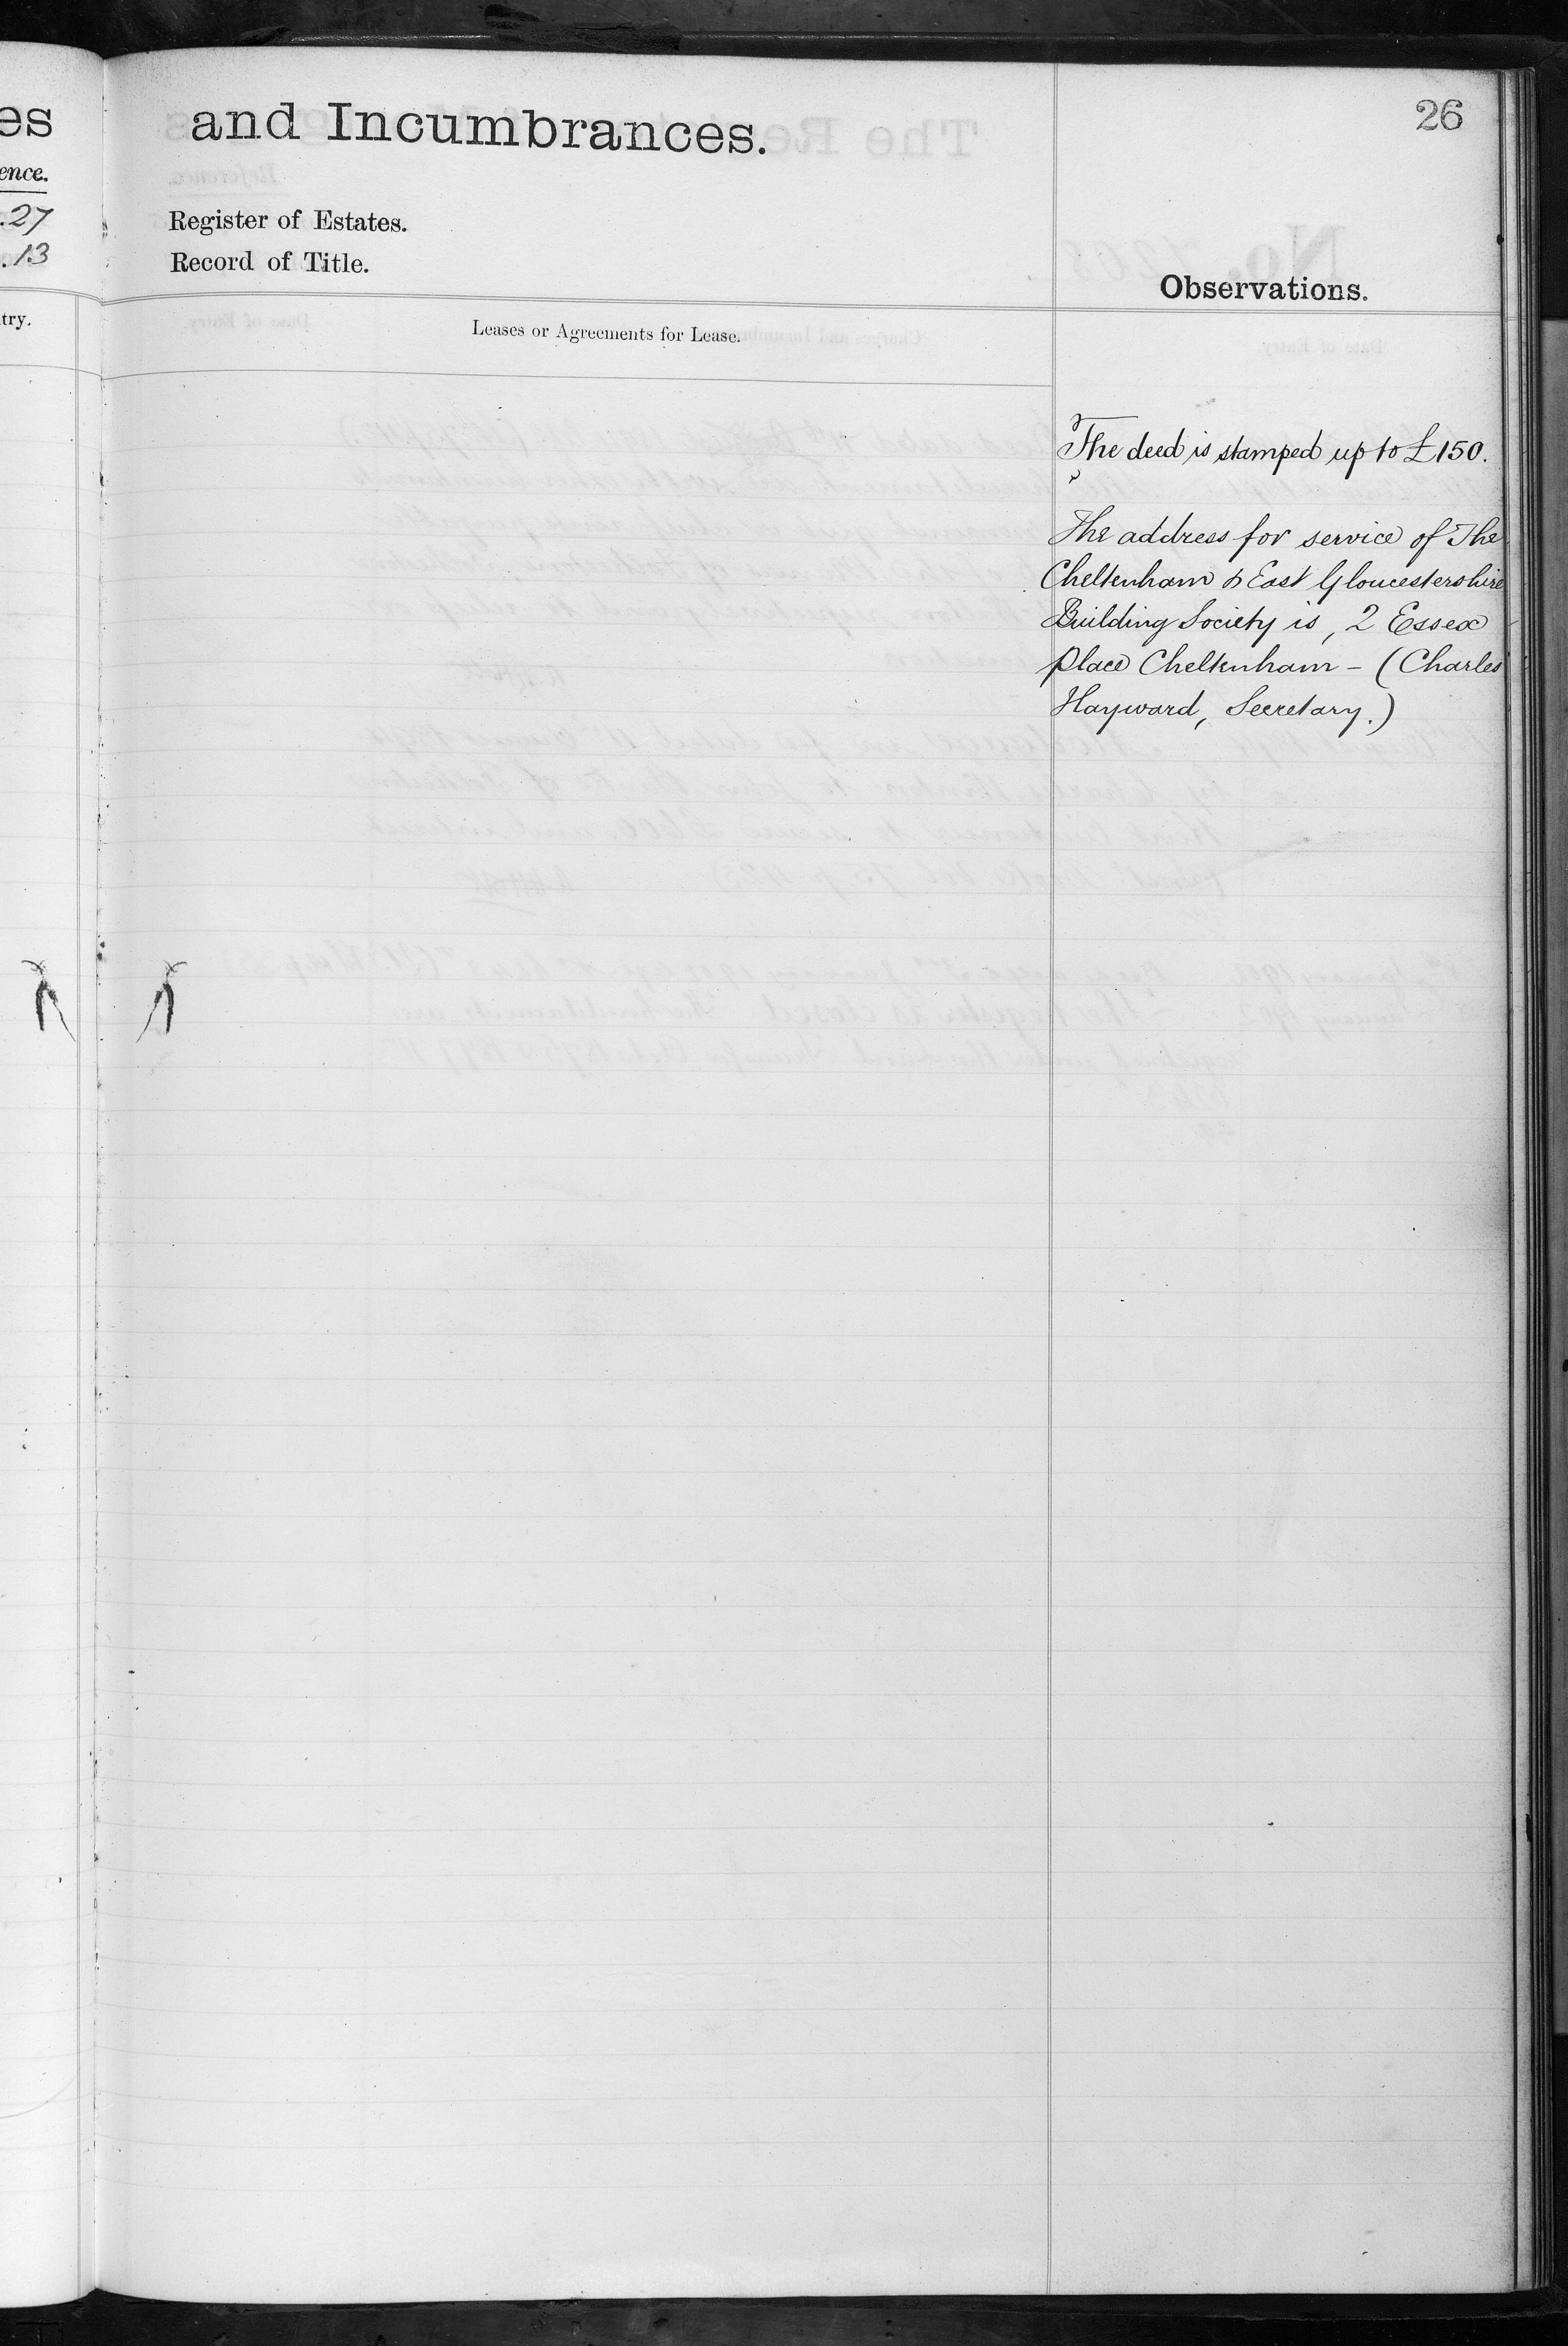 es
ence.
.27
.13
try.
and Incumbrances.
26
Register of Estates.
Record of Title.
Observations.
Leases or Agreements for Lease.
The deed is stamped up to £150.
The address for service of The
Cheltenham & East Gloucestershire
Building Society is, 2 Essex
place Cheltenham - (Charles
Hayward, Secretary.)